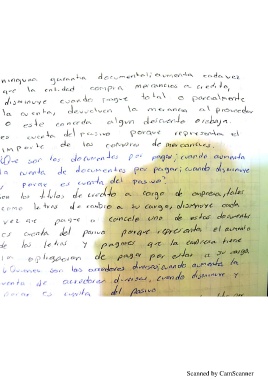 ninguna garantia documental; aumenta cada vez
que la entidad compra mercancias a credito,
disminuye cuando pague total o parcialmente
la cuenta, devuelven la mercancia al proveedor
o este conceda algun descuento o rebaja.
es cuenta del pasivo porque representa el
importe de las compras de mercancias.
Que son los documentos por pagar; cuando aumenta
la cuenta de documentos por pagar; cuando disminuye
y porque es cuenta del pasivo?
on los titulos de credito a cargo de empresa, tales
como letras de cambio a su cargo, disminuye cada
vez que pague o cancele uno de estos documentos
es cuenta del pasivo porque representa el
de las letras pagares que la empresa tiene
la obligacion de pagar por estar a su cargo.
6 Quienes son los acreedores diversos; cuando aumenta la
uenta de acreedores diversos, cuando disminuye y
porque es cuenta del pasivo.
Scanned by CamScanner